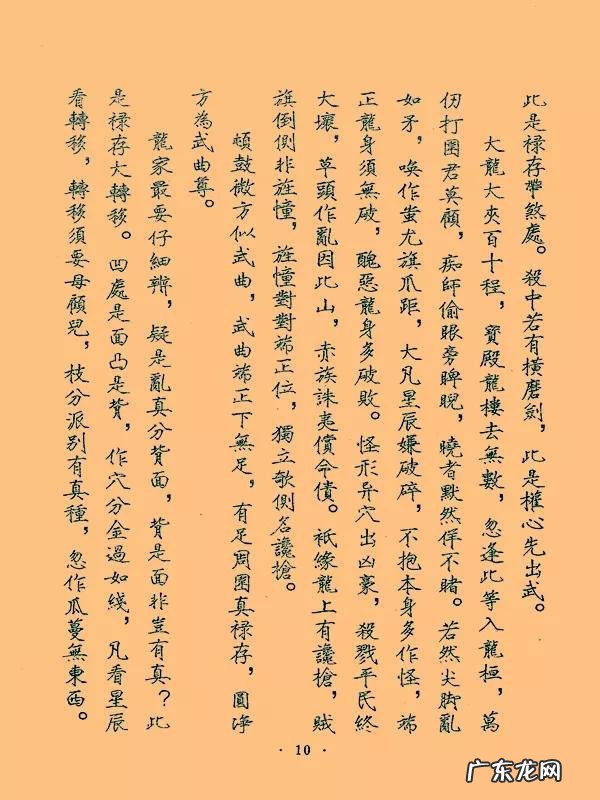 此是禄存帶煞處。殺中若有橫磨劍，此是權心先出武。
大龍大夾百十程，寶殿龍樓去無數，忽逢此等入龍桓，萬
仞打圍君莫顧，痴師偷眼旁睥睨，曉者默然佯不睹。若然尖脚亂
如矛，喚作蚩尤旗爪距，大凡星辰嫌破碎，不抱本身多作怪，端
正龍身須無破，醜惡龍身多破敗。怪形异穴出凶豪，殺戮平民終
大壞，草頭作亂因此山，赤族誅夷償命債。衹緣龍上有讒槍，賊
旗倒側非旌憧，旌憧對對端正位，獨立欹側名讒槍。
頓鼓微方似武曲，武曲端正下無足，有足周圍真禄存，圓净
方為武曲尊。
龍家最要仔細辨，疑是亂真分背面，背是面非豈有真？此
是禄存大轉移。凹處是面凸是背，作穴分金過如綫，凡看星辰
看轉移，轉移須要母顧兒，枝分派別有真種，忽作瓜蔓無東西。
· 10 ·
广东龙网